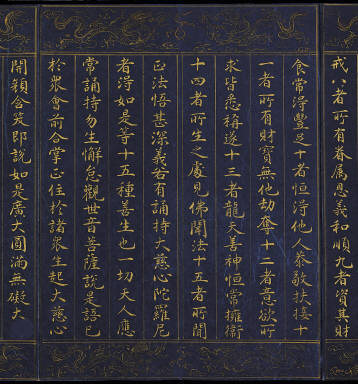 戒八者所有眷属恩義和順九者資其財
食常淂豐足十者恒淂他人恭敬扶接十
一者所有財寳無他劫奪十二者意欲所
求皆悉稱遂十三者龍天善神恒常擁衛
十四者所生之處見佛聞法十五者所聞
正法悟甚深義若有誦持大慈心陀羅尼
者淂如是等十五種善生也一切天人應
常誦持勿生懈怠觀世音菩薩說是語已
於衆會前合掌正住於諸衆生起大慈心
開顔含笑即說如是廣大圓滿無礙大